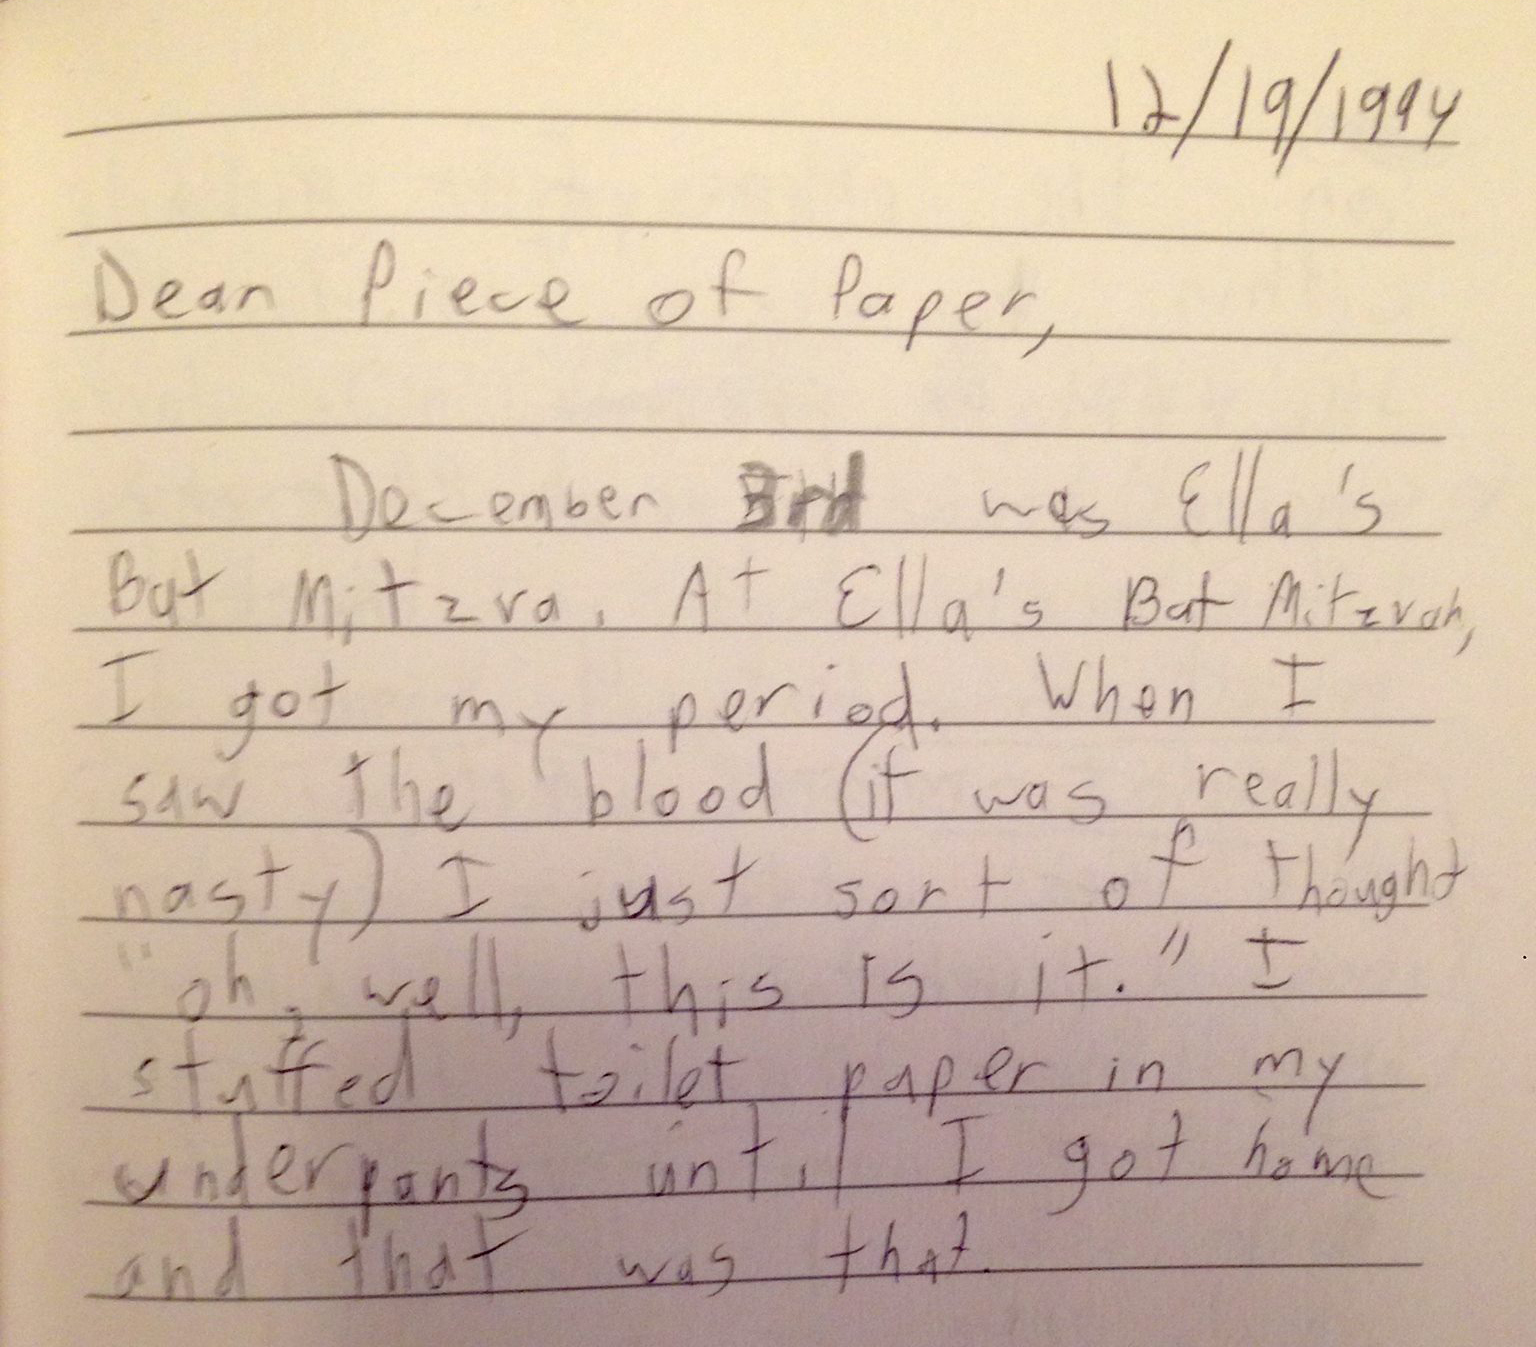 12/19/1994
Dear Piece of Paper,
December 3rd was Ella's
Bat Mitzva. At Ella's Bat Mitzvah,
I got my period. When I
saw the blood (it was really
nasty) I just sort of thought
"oh, well, this is it." I
stuffed toilet paper in my
underpants until I got home
and that was that.